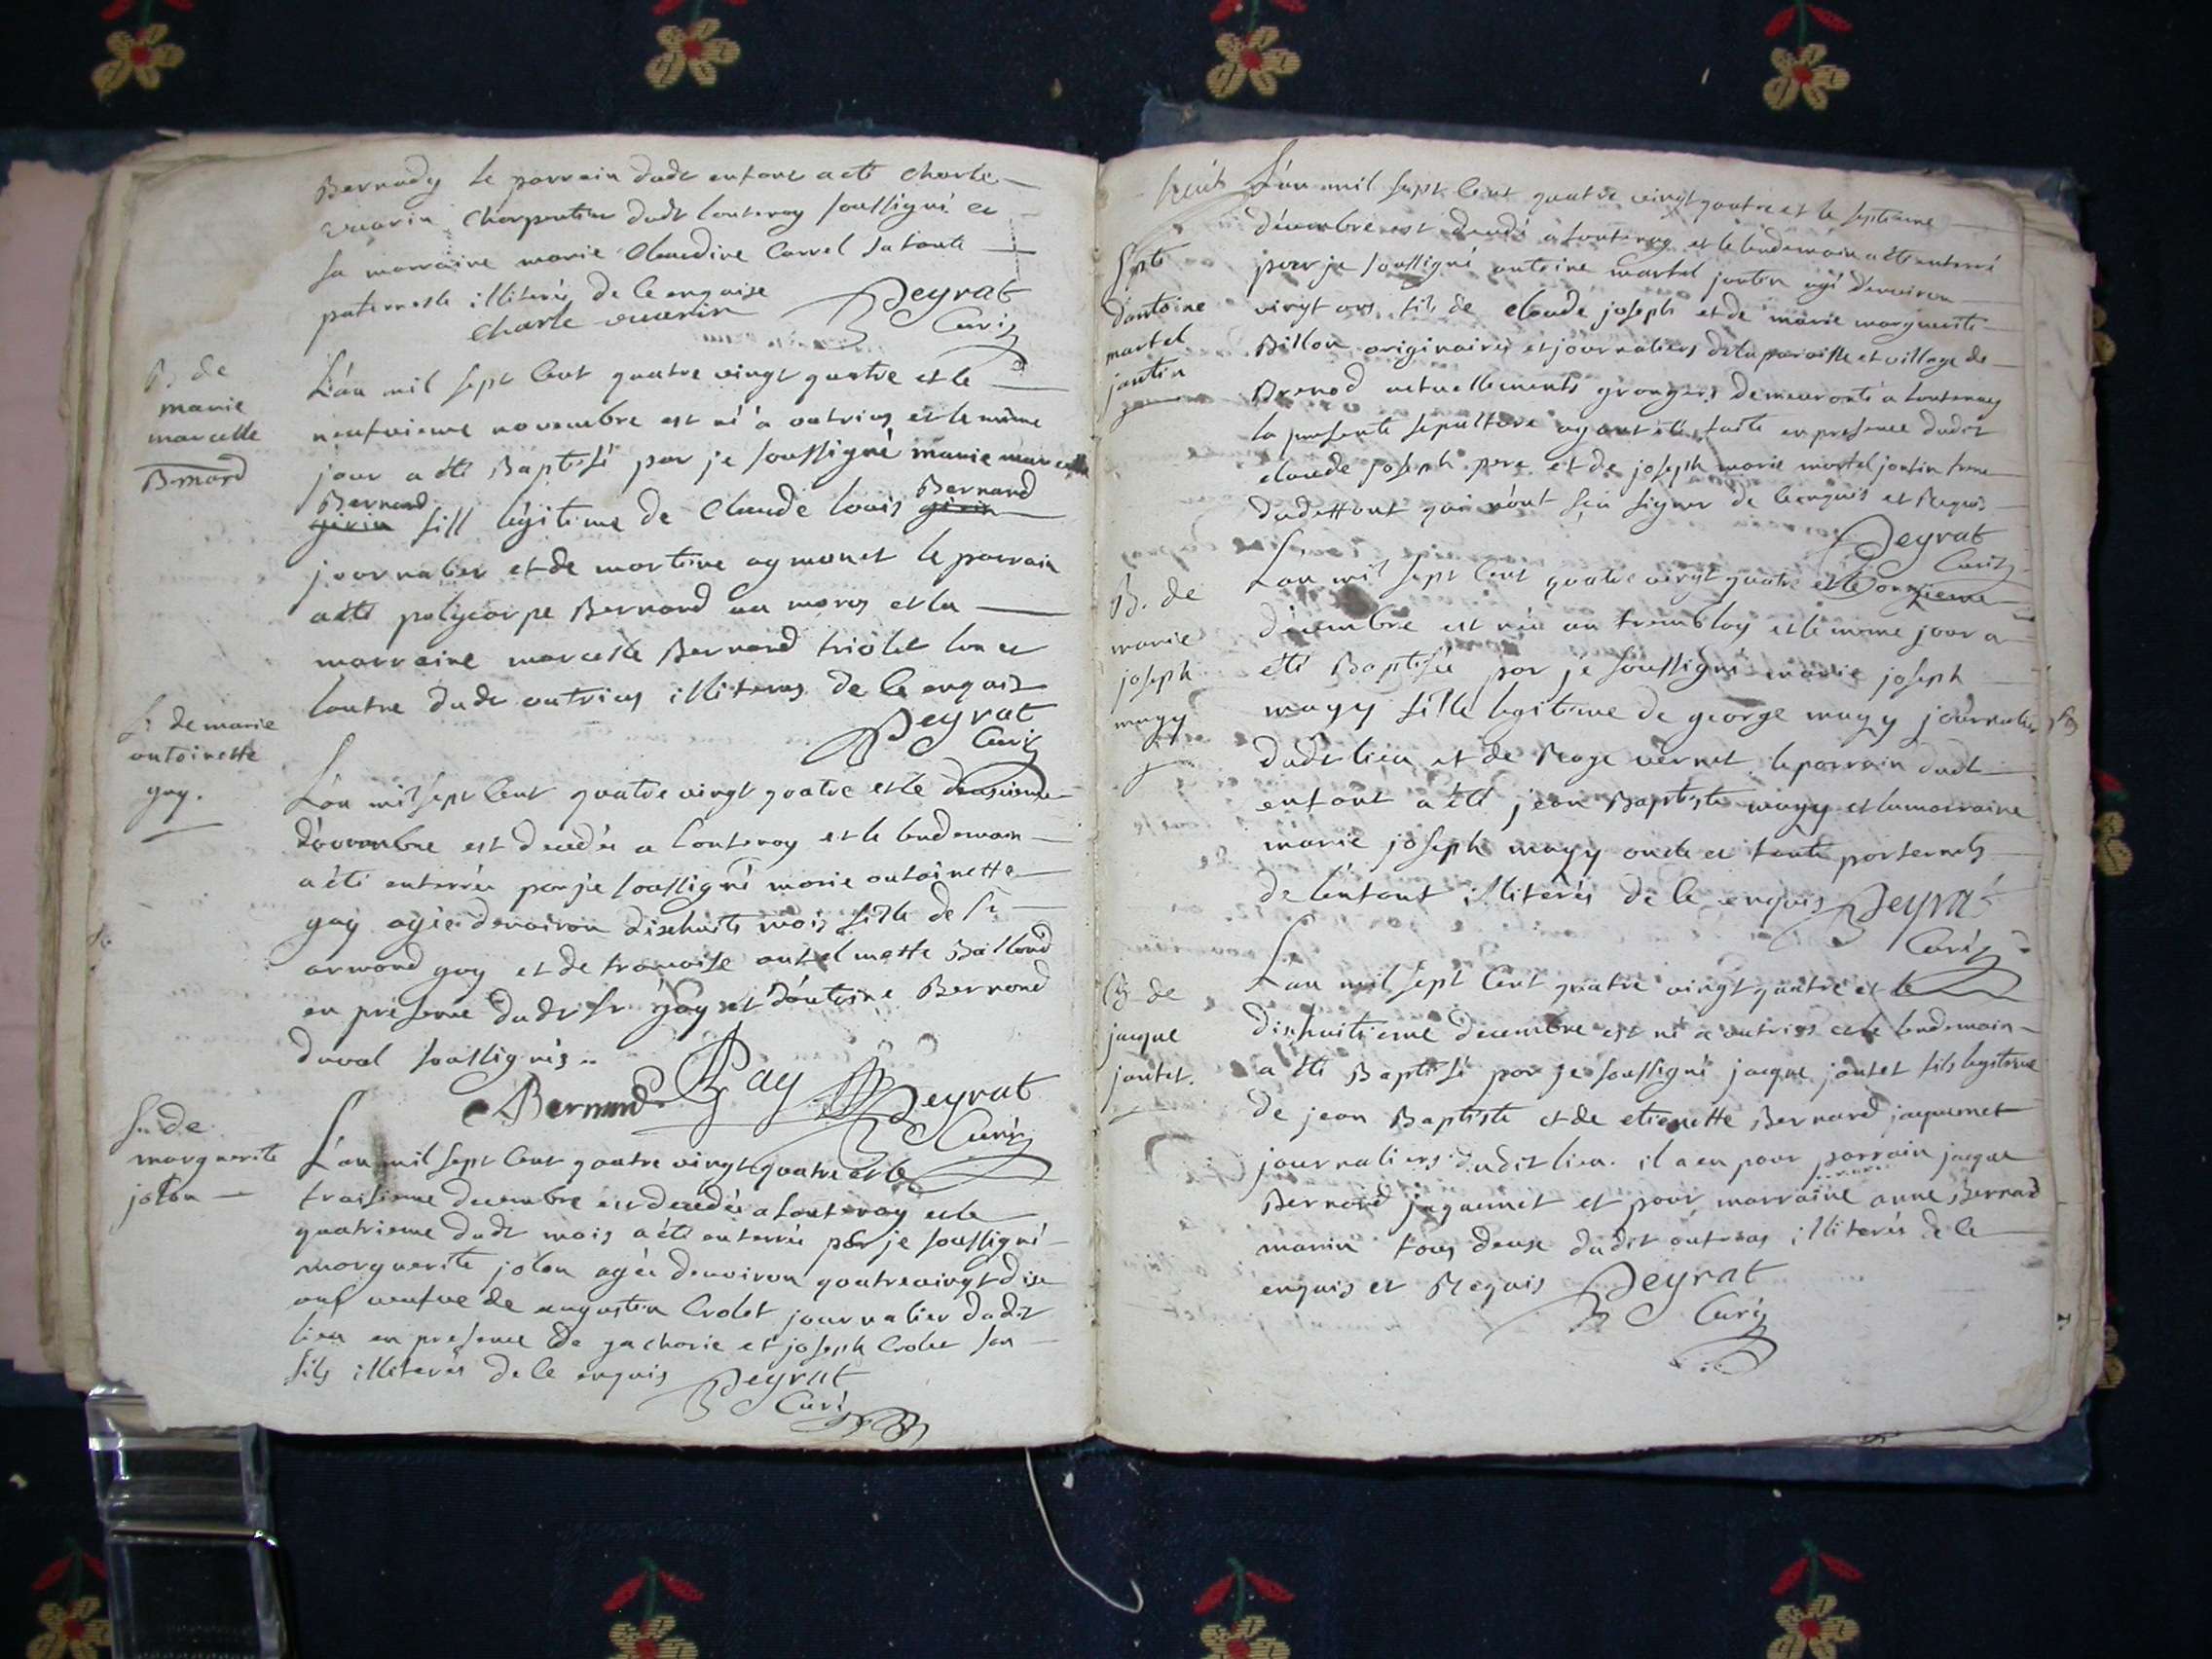 Bernady le parrain dudt enfant a été charle
vuarin charpentier dudt lantenay soussigné et
sa marraine marie claudine Carrel sa tante
paternelle illiterés de ce enquise
charle vuarin Peyrat
Curé
B. de
marie
marcelle
Bernard
L'an mil sept cent quatre vingt quatre et le
neufvieme novembre est né a outrias et le même
jour a été Baptisé par je soussigné marie marcelle
Bernard fille légitime de Claude louis Bernard
journalier et de martine aymonet le parrain
a été polycarpe Bernard au moras et la
marraine marcelle Bernard triolet l'un et
l'autre dudt outrias illiteres de ce enquis
Peyrat
Curé
S. de marie
antoinette
gay.
L'an mil sept cent quatre vingt quatre et le
décembre est decedée a lantenay et le lendemain
a été enterrée par je soussigné marie antoinette
gay agée d'environ dixhuits mois fille de sr
armand gay et de francoise antelmette Balland
en présence dudt sr gay et d'antoine Bernard
duval soussignés
Bernard Gay Peyrat
Curé
S. de
marguerite
jolon
L'an mil sept cent quatre vingt quatre et le
traisieme decembre est decedée a lantenay et le
quatrieme dudt mois a été enterrée par je soussigné
marguerite jolon agée d'environ quatrevingt dix
ans veufve de augustin Crolet journalier dudit
lieu en presence de zacharie et joseph Crolet ses
fils illiterés de ce enquis Peyrat
Curé
L'an mil sept cent quatre vingt quatre et le septieme
décembre est decedé a lantenay et le lendemain a été enterré
par je soussigné antoine martel jantin agé d'environ
vingt ans fils de claude joseph et de marie marguerite
Billon originaires et journaliers de la paroisse et village de
Brenod actuellements grangers demeurants a lantenay
la presente sepulture ayant été faite en presence dudit
claude joseph pere et de joseph marie martel jantin frere
dudeffunt qui n'ont sçu signer de ce enquis et Requis
Peyrat
Curé
Spte
d'antoine
martel
jantin
B. de
marie
joseph
mugy
L'an mil sept cent quatre vingt quatre et le onzieme
décembre est née au tremblay et le meme jour a
été Baptisée par je soussigné marie joseph
mugy fille legitime de george mugy journalier
dudt lieu et de vernet le parrain dudt
enfant a été jean Baptiste mugy et la marraine
marie joseph mugy oncle et tante paternels
de l'enfant illiterés de ce enquis Peyrat
Curé
B. de
jacque
jantet.
L'an mil sept cent quatre vingt quatre et le
dixhuitieme decembre est né a outrias et le lendemain
a été Baptisé par je soussigné jacque jantet fils legitime
de jean Baptiste et de etienette Bernard jaquemet
journaliers dudit lieu. il a eu pour parrain jacque
Bernard jaquemet et pour marraine anne Bernard
marin tous deux dudit outrias illiterés de ce
enquis et Requis Peyrat
Curé